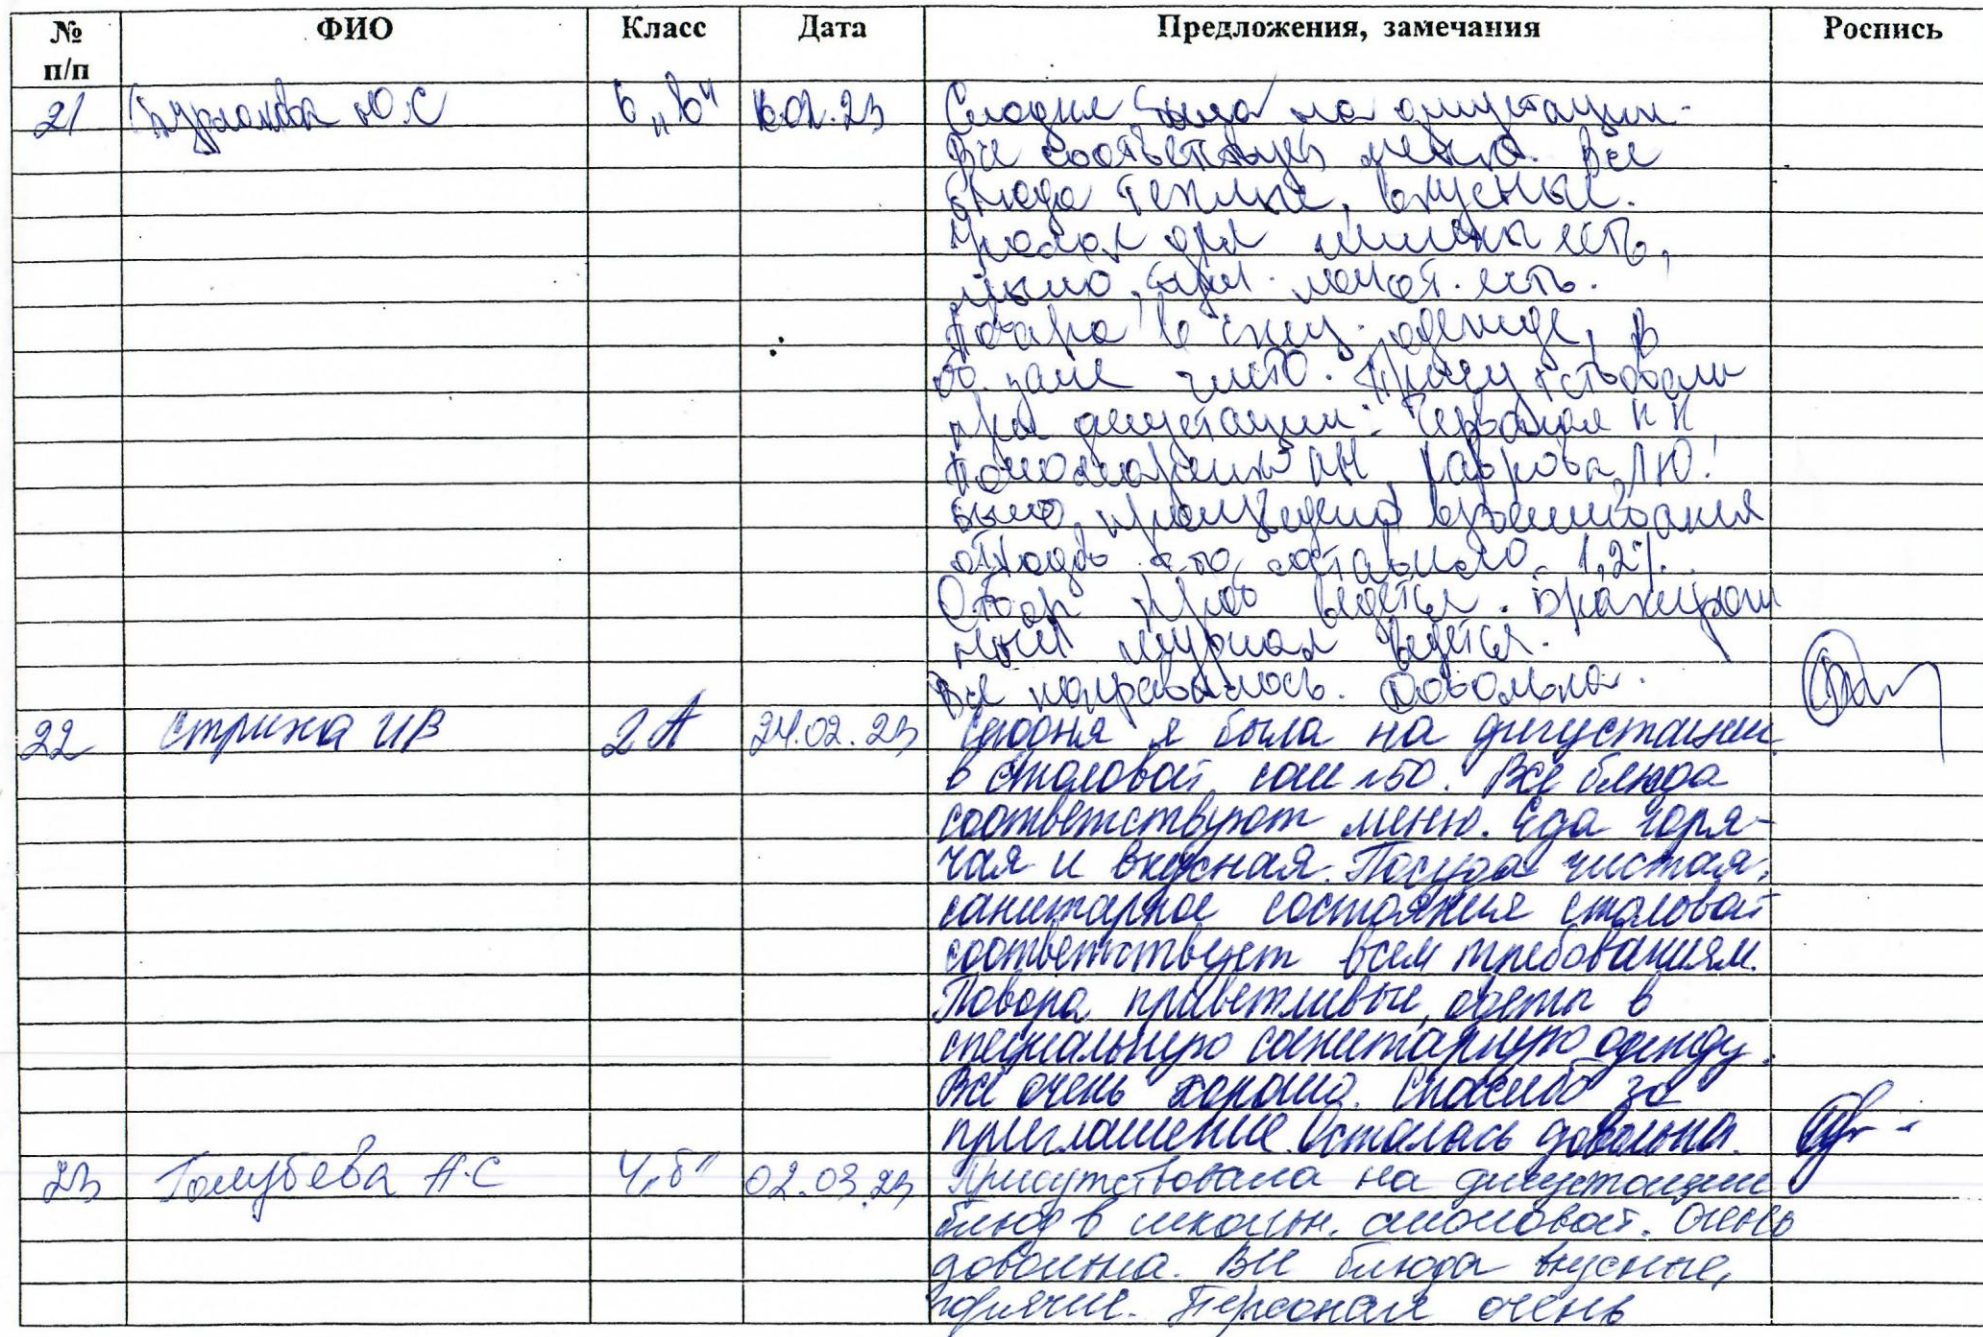 № п/п ФИО Класс Дата Предложения, замечания Роспись
21 Ю.С 6 „В" .02.23 Сегодня была на дигустации.
Все соответствует меню. Все
блюда теплые, вкусные.
есть,
мыло, есть.
Повара в спец. одежде, в
об. зале чисто. Присутствовали
при дигустации: Н.Н,
Пономаренко Лаврова Л.Ю.
было произведено взвешивания
отходов это составило 1,2%.
Отбор проб ведётся. Бракераж
ный журнал ведётся.
Все понравилось. Довольна.
22 Стриха И В 2 А 24.02.23 Сегодня я была на дигустации
в столовой сош №50. Все блюда
соответствуют меню. Еда горя-
чая и вкусная. Посуда чистая,
санитарное состояние столовой
соответствует всем требованиям.
Повора приветливые, одеты в
специальную санитарную одежду.
Все очень хорошо. Спасибо за
приглашение. Осталась довольна.
23 Голубева А.С 4„б" 02.03.23 Присутствовала на дигустации
блюд в школьн. столовой. Очень
довольна. Все блюда вкусные,
горячие. Персонал очень